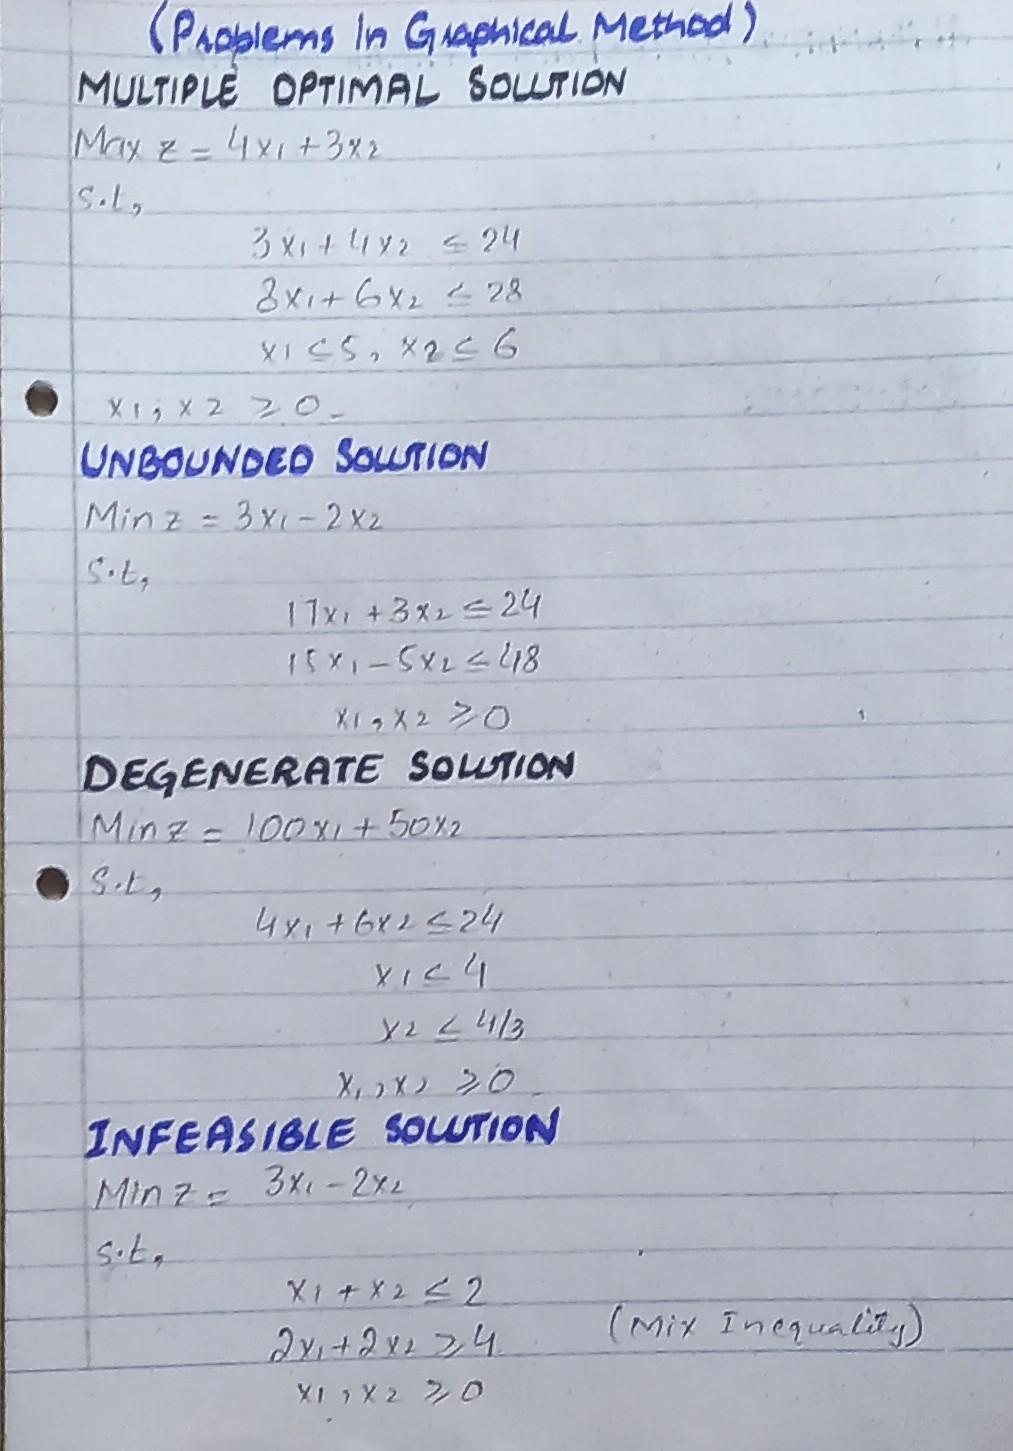 (Problems In Graphical Method)
MULTIPLE OPTIMAL SOLUTION
Max z = 4x1 + 3x2
S.t,
3x1 + 4x2 ≤ 24
8x1 + 6x2 ≤ 28
x1 ≤ 5, x2 ≤ 6
x1, x2 ≥ 0
UNBOUNDED SOLUTION
Min z = 3x1 - 2x2
S.t,
17x1 + 3x2 ≤ 24
15x1 - 5x2 ≤ 48
x1, x2 ≥ 0
DEGENERATE SOLUTION
Min z = 100x1 + 50x2
S.t,
4x1 + 6x2 ≤ 24
x1 ≤ 4
x2 ≤ 4/3
x1, x2 ≥ 0
INFEASIBLE SOLUTION
Min z = 3x1 - 2x2
S.t,
x1 + x2 ≤ 2
2x1 + 2x2 ≥ 4 (Mix Inequality)
x1, x2 ≥ 0